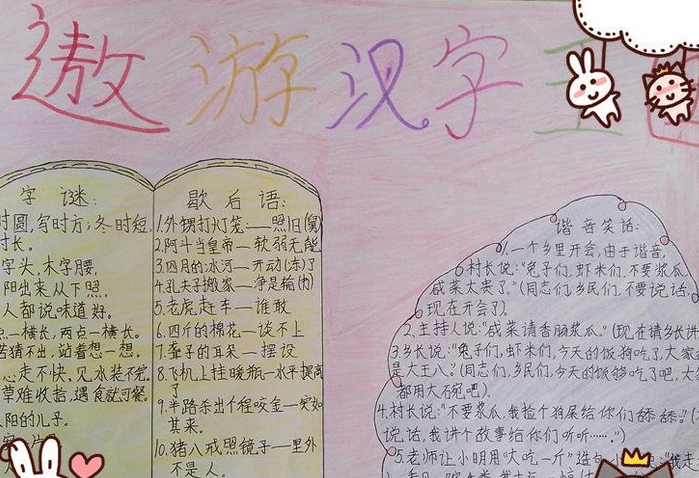 遨游汉字王
字谜:
时圆,写时方;冬时短,
时长。
字头,木字腰,
阳出来从下照,
人都说味道好。
一横长,两点一横长。
苦猜不出,站着想一想。
心走不快,见水装不完,
草难收拾,遇食就可餐。
阳的儿子。
歇后语:
1.外甥打灯笼——照旧(舅)
2.阿斗当皇帝——软弱无能
3.四月的冰河——开动(冻)了
4.孔夫子搬家——净是输(书)
5.老虎赶车——谁敢
6.四斤的棉花——谈不上
7.聋子的耳朵——摆设
8.飞机上挂暖瓶—水平提高
了
9.半路杀出个程咬金—突如
其来。
10.猪八戒照镜子—里外
不是人。
谐音笑话:
1.一个乡里开会,由于谐音,
村长说:“兔子们,虾米们,不要浆瓜,
咸菜太贵了。”(同志们,乡民们,不要说话,
现在开会了)
2.主持人说:“咸菜请香肠浆瓜。”(现在请乡长讲
3.乡长说:“兔子们,虾米们,今天的饭狗吃了,大家
是大王八。”(同志们,乡民们,今天的饭够吃了吧,大
都用大碗吧)
4.村长说:“不要浆瓜,我捡个狗屎给你们舔舔。”(
说话,我讲个故事给你们听听……。”)
5.老师让小明用“大吃一斤”造句